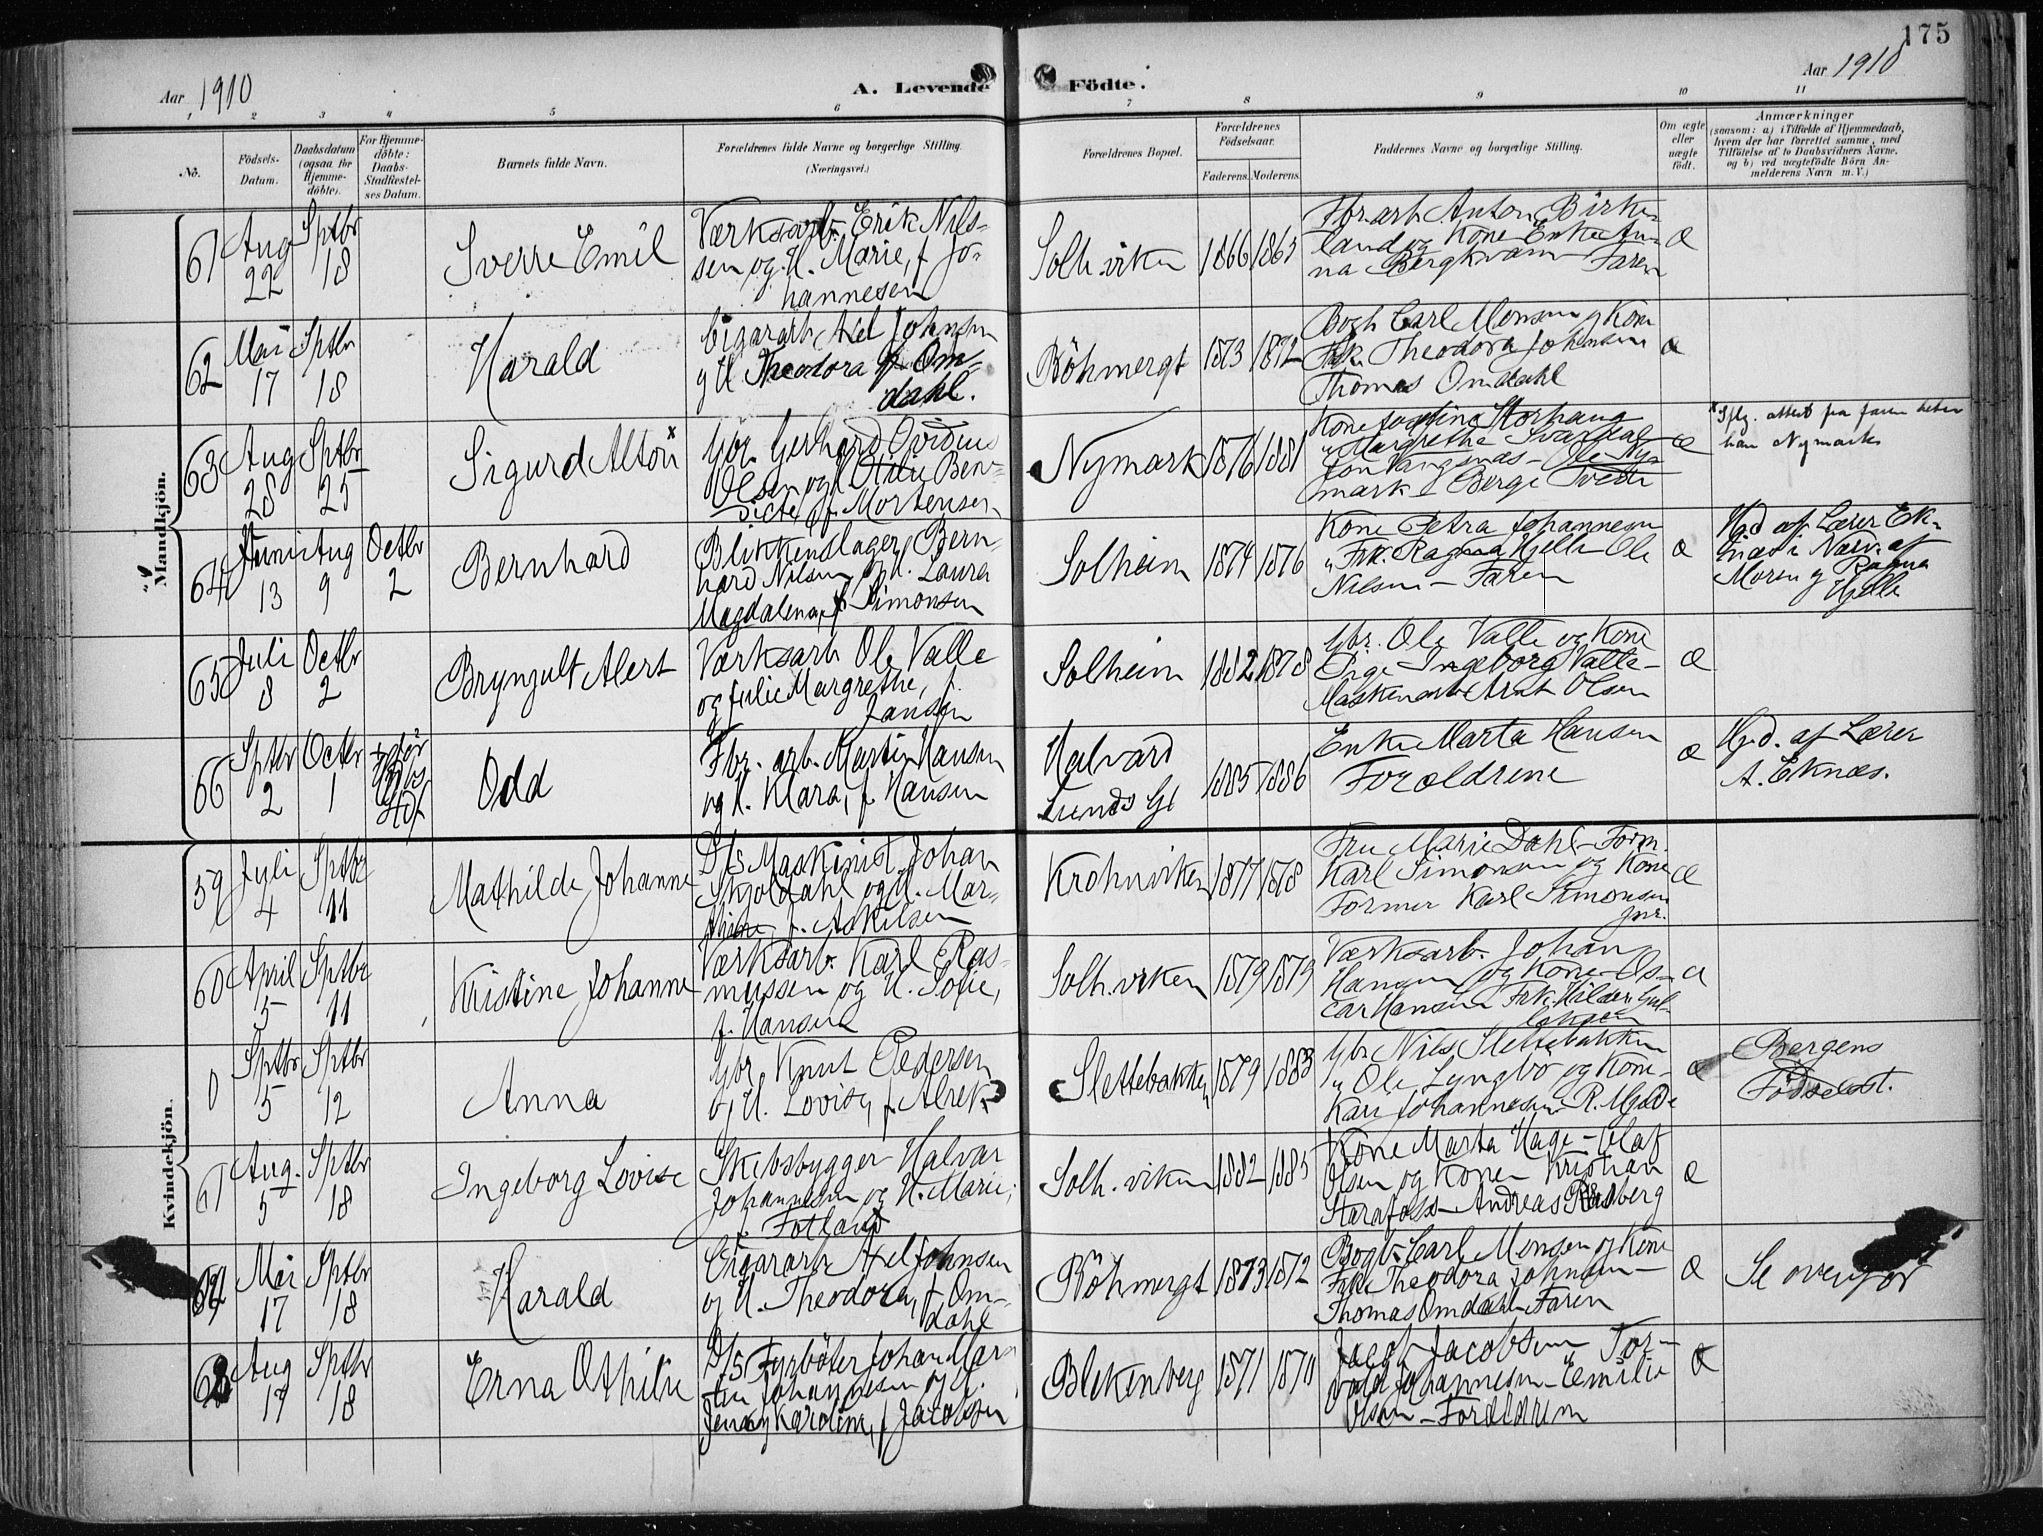 175
Aar 1910
A. Levende Födte.
Aar 1910
1 2 3 4 5 6 7 8 9 10 11
No.
Födsels-Datum.
Daabsdatum (ogsaa for Hjemmedöbte).
For Hjemmedöbte: Daabs-Stadfæstelses Datum.
Barnets fulde Navn.
Forældrenes fulde Navne og borgerlige Stilling. (Næringsvei.)
Forældrenes Bopæl.
Forældrenes Födselsaar.
Faderens. Moderens.
Faddernes Navne og borgerlige Stilling.
Om ægte eller uægte födt.
Anmærkninger
(saasom: a) i Tilfælde af Hjemmedaab, hvem der har forrettet samme, med Tilföielse af to Daabsvidners Navne, og b) ved uægtefödte Börn Anmelderens Navn m. V.)
Mandkjön.
61 Aug 22 Sptbr 18 Sverre Emil
Værksarb. Erik Nils-
sen og H. Marie, f Jo-
hannesen
Solh.viken 1866 1863
Fbr.arb. Anton Birke-
land og Kone Enke An-
na Bergkvam Faren
æ
62 Mai 17 Sptbr 18 Harald
Cigararb Axel Johnsen
og H Theodora f. Om-
dahl.
Böhmergt 1873 1872
Bogh Carl Monsen og Kone
Frk. Theodora Johnsen
Thomas Omdahl
æ
63 Aug 28 Sptbr 25 Sigurd Alton x
Gbr. Gerhard Ovidius
Olsen og H Otilie Ben-
dicte, f. Mortensen
Nymark 1876 1881
Kone Storhaug
" Margrethe
Jon Vangsnæs - Ole Ny-
mark - Berge Tveite
æ
x Iflg. attest fra faren heter
han Nymark
64 Juni 13 Aug 9 Octbr 2 Bernhard
Blikkenslager Bern-
hard Nilsen og H. Laura
Magdalena, f. Simonsen
Solheim 1874 1876
Kone Petra Johannesen
" Frk. Ragna Hjelle Ole
Nilsen - Faren
æ
Hjd af Lærer Ek-
næs i Nærv. af
Moren og Ragna
Hjelle
65 Juli 8 Octbr 2 Bryngult Alert
Værksarb Ole Valle
og Julie Margrethe, f.
Jansen
Solheim 1882 1878
Gbr. Ole Valle og Kone
Pige Ingeborg Valle -
Maskinarb Arnt Olsen
æ
66 Sptbr 2 Octbr 1 Odd
Fbr. arb. Martin Hansen
og H. Klara, f. Hansen
Halvard
Lunds Gt
1885 1886
Enke Marta Hansen
Forældrene
æ
Hjd. af Lærer
A. Eknæs.
Kvindekjön.
59 Juli 4 Sptbr 11 Mathilde Johanne
D/s Maskinist Johan
Skjoldahl og H. Mar-
f. Askilsen
Krohnviken 1877 1878
Fru Marie Dahl - Form.
Karl Simonsen og Kone
Former Karl Simonsen
jnr.
æ
60 April 5 Sptbr 11 Kristine Johanne
Værksarb. Karl Ras-
mussen og H. Sofie,
f. Hansen
Solh.viken 1879 1879
Værksarb. Johan
Hansen og Kone - Os-
car Hansen Frk. Hilda Gul-
æ
0 Sptbr 5 Sptbr 12 Anna
Gbr Knut Pedersen
og H. Lovise, f. Alrek
Slettebakken 1879 1883
Gbr Nils Slettebakken
" Ole Lyngbö og Kone -
Kari Johannesen R. Mjelde
æ
Bergens
Födselsst.
61 Aug. 5 Sptbr 18 Ingeborg Lovise
Skibsbygger Halvar
Johannesen og H. Marie,
f. Fotland
Solh.viken 1882 1885
Kone Marta Hage - Olaf
Olsen og Kone Kristian
Starafoss - Andreas
æ
62 Mai 17 Sptbr 18 Harald
Cigararb Axel Johnsen
og H. Theodora, f. Om-
dahl
Böhmergt 1873 1872
Bogh. Carl Monsen og Kone
Frk. Theodora Johnsen -
Thomas Omdahl Faren
æ
Se ovenfor
62 Aug 17 Sptbr 18 Erna Othilie
D/S Fyrböter Johan Mar-
tin Johannesen og H.
Jenny Karoline, f Jacobsen
Blekenberg 1871 1870
Jacob Jacobsen Tor-
vald Johannesen - Emilie
Olsen - Forældrene
æ